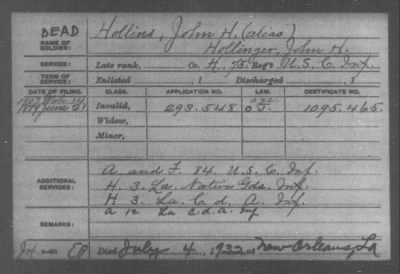 DEAD
NAME OF SOLDIER: Hollins, John H. (alias)
Hollinger, John H.
SERVICE: Late rank, Co. H, 75 Reg't U.S.C. Inf.
TERM OF SERVICE: Enlisted , 1 Discharged , 1
DATE OF FILING. CLASS. APPLICATION NO. LAW. CERTIFICATE NO.
1879 June 21 Invalid, 293.548 1095.465
Widow,
Minor,
ADDITIONAL SERVICES: A. and F. 84. U.S.C. Inf.
H. 3. La. Native Gds. Inf.
H. 3. La. C. d. A. Inf.
A 12 La C.d.A. Inf
REMARKS:
Died July 4, 1932, at New Orleans, La